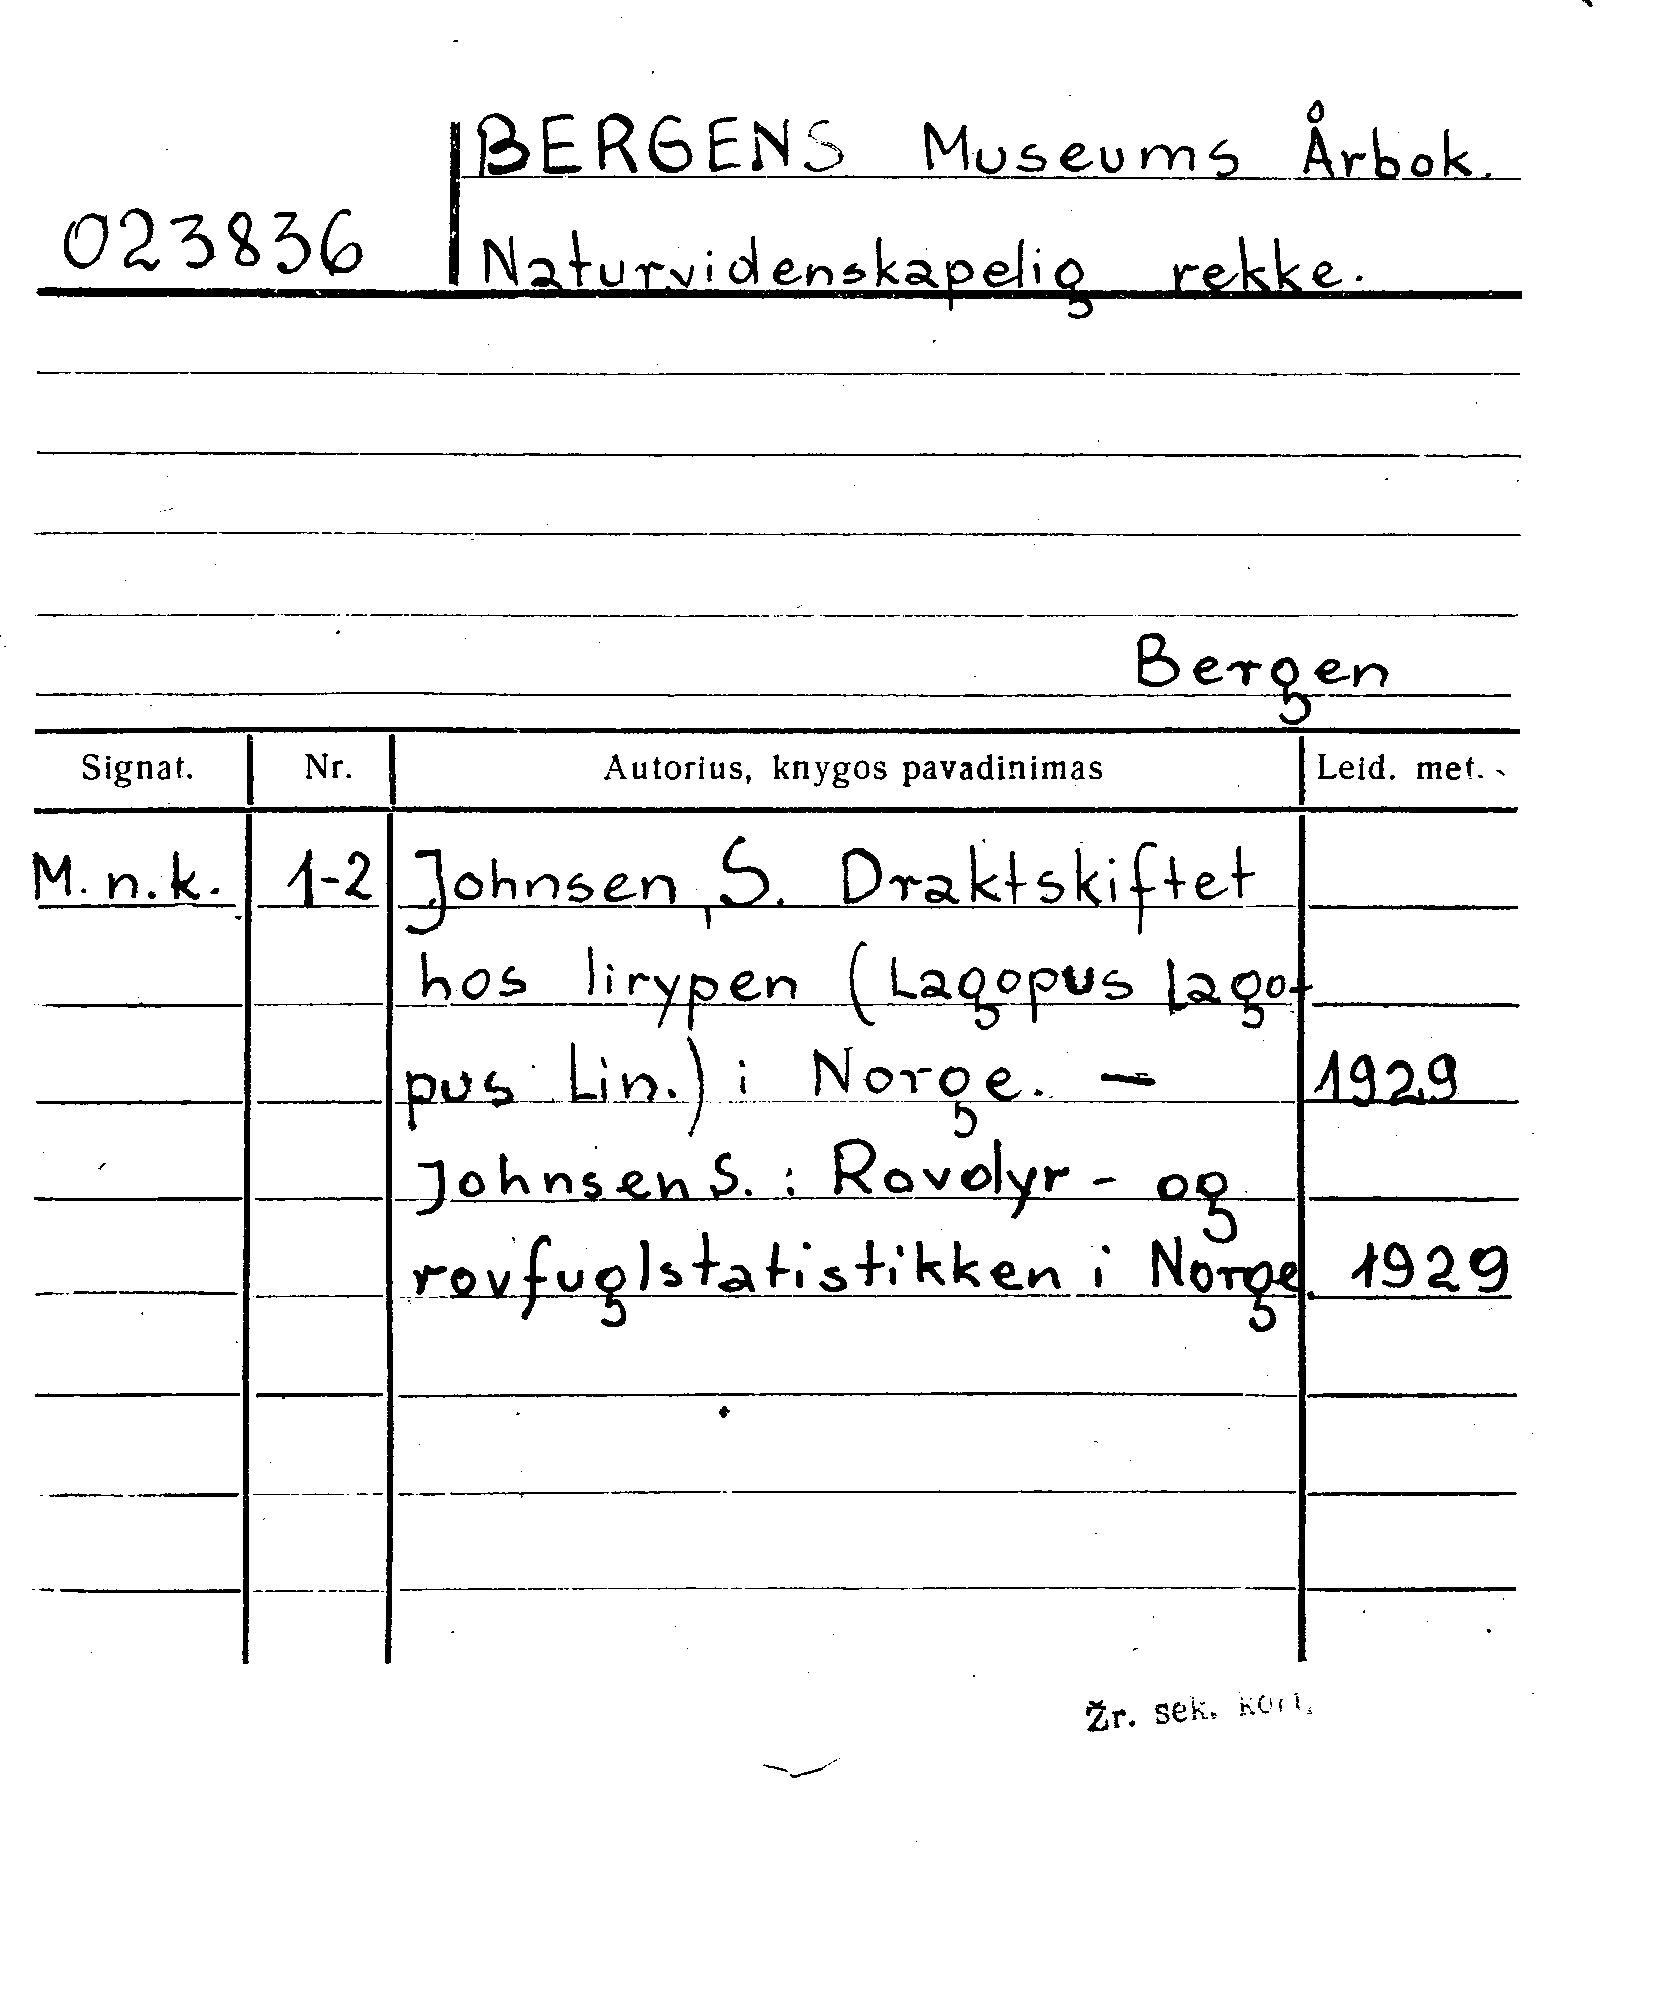 BERGENS Museums Årbok.
023836
Naturvidenskapelig rekke.
Bergen
Signat. Nr. Autorius, knygos pavadinimas Leid. met.
M.n.k. 1-2 Johnsen, S. Draktskiftet
hos lirypen (Lagopus lago-
pus Lin.) i Norge. — 1929
Johnsen S. : Rovdyr - og
rovfuglstatistikken i Norge. 1929
Žr. sek. kort.